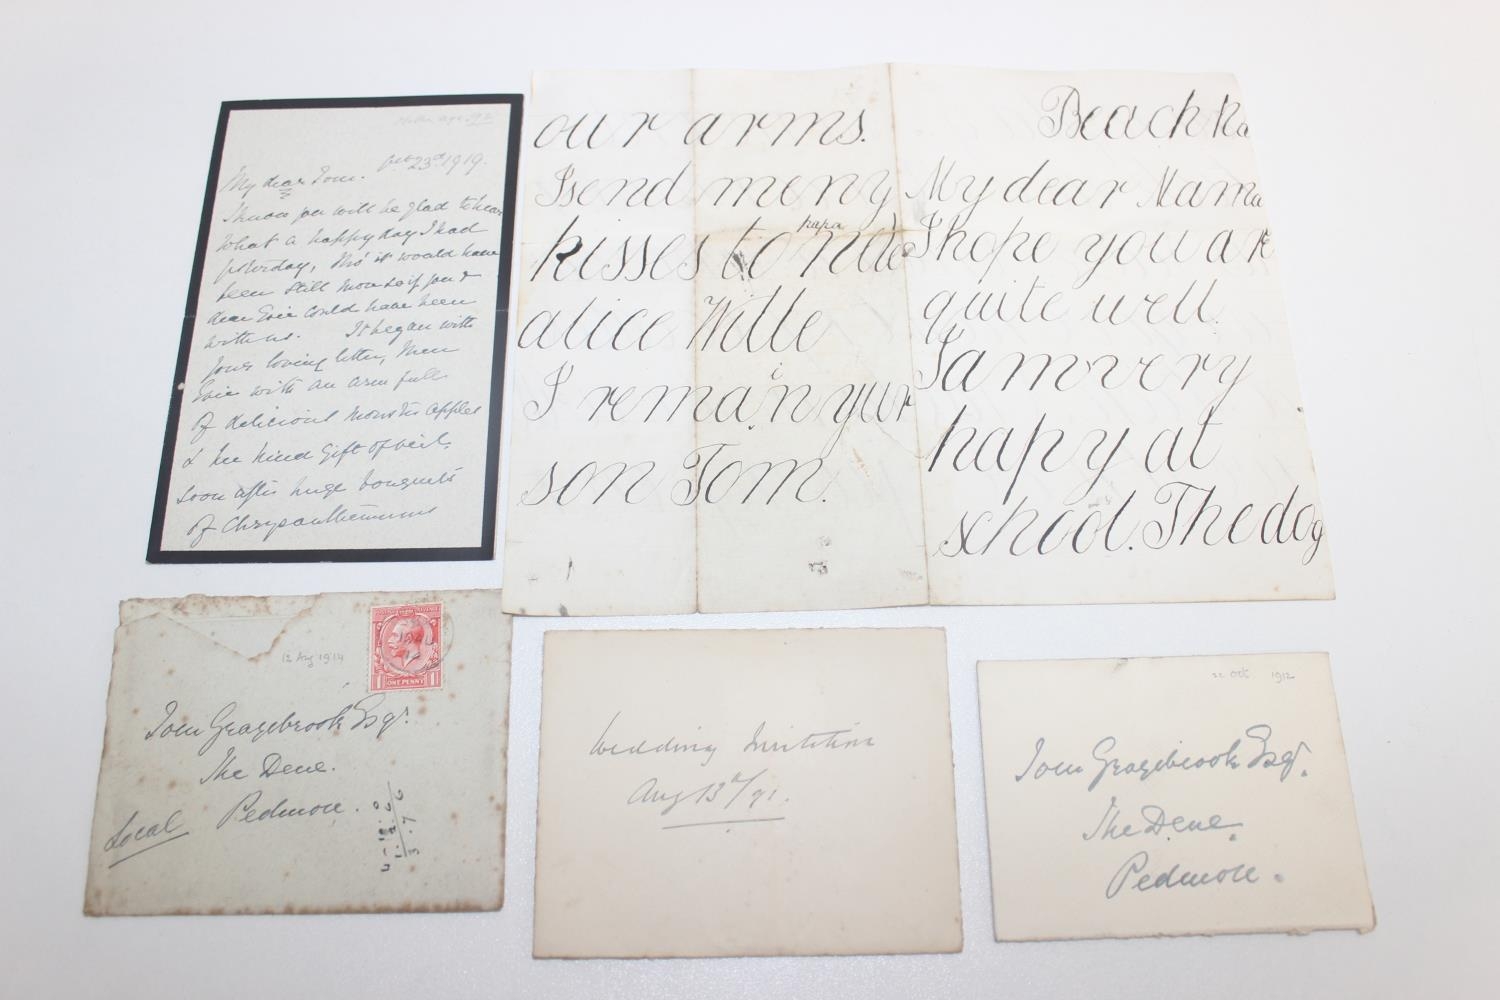 Mother age 92
Oct 23rd 1919.
My dear Tom.
I know you will be glad to hear
what a happy day I had
yesterday, tho' it would have
been still more so if you &
dear Evie could have been
with us. It began with
your loving letter, then
Evie with an arm full
of delicious monster apples
& her kind gift of veil,
soon after huge bouquets
of Chrysanthemums
our arms.
I send meny
papa
kisses to
alice Wille
I remain your
son Tom.
Beach
My dear Mama
I hope you are
quite well.
I am very
hapy at
school. The dog
12 Aug 1914
ONE PENNY
Tom Grazebrook Esqr.
The Dene.
Pedmore.
Local
4-10.0
1.2.6
3.7.6
Wedding Invitation
Aug 13th/91.
22 Oct 1912
Tom Grazebrook Esqr.
The Dene.
Pedmore.